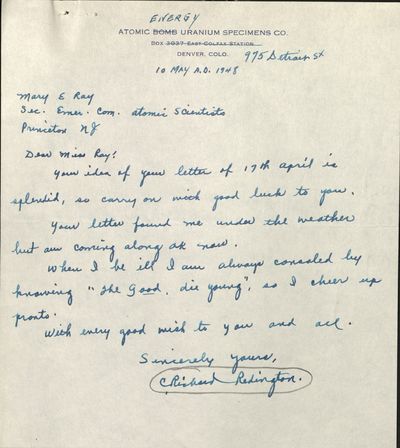 ENERGY
ATOMIC BOMB URANIUM SPECIMENS CO.
BOX 3037 EAST COLFAX STATION
DENVER, COLO. 975 Detroit St
10 MAY A.D. 1948
Mary E Ray
Sec. Emer. Com. atomic Scientists
Princeton NJ
Dear Miss Ray:
Your idea of your letter of 17th april is
splendid, so carry on with good luck to you.
Your letter found me under the weather
but am coming along ok now.
When I be ill I am always consoled by
knowing "The Good, die young", so I cheer up
pronto.
With every good wish to you and all.
Sincerely yours,
C. Richard Redington.